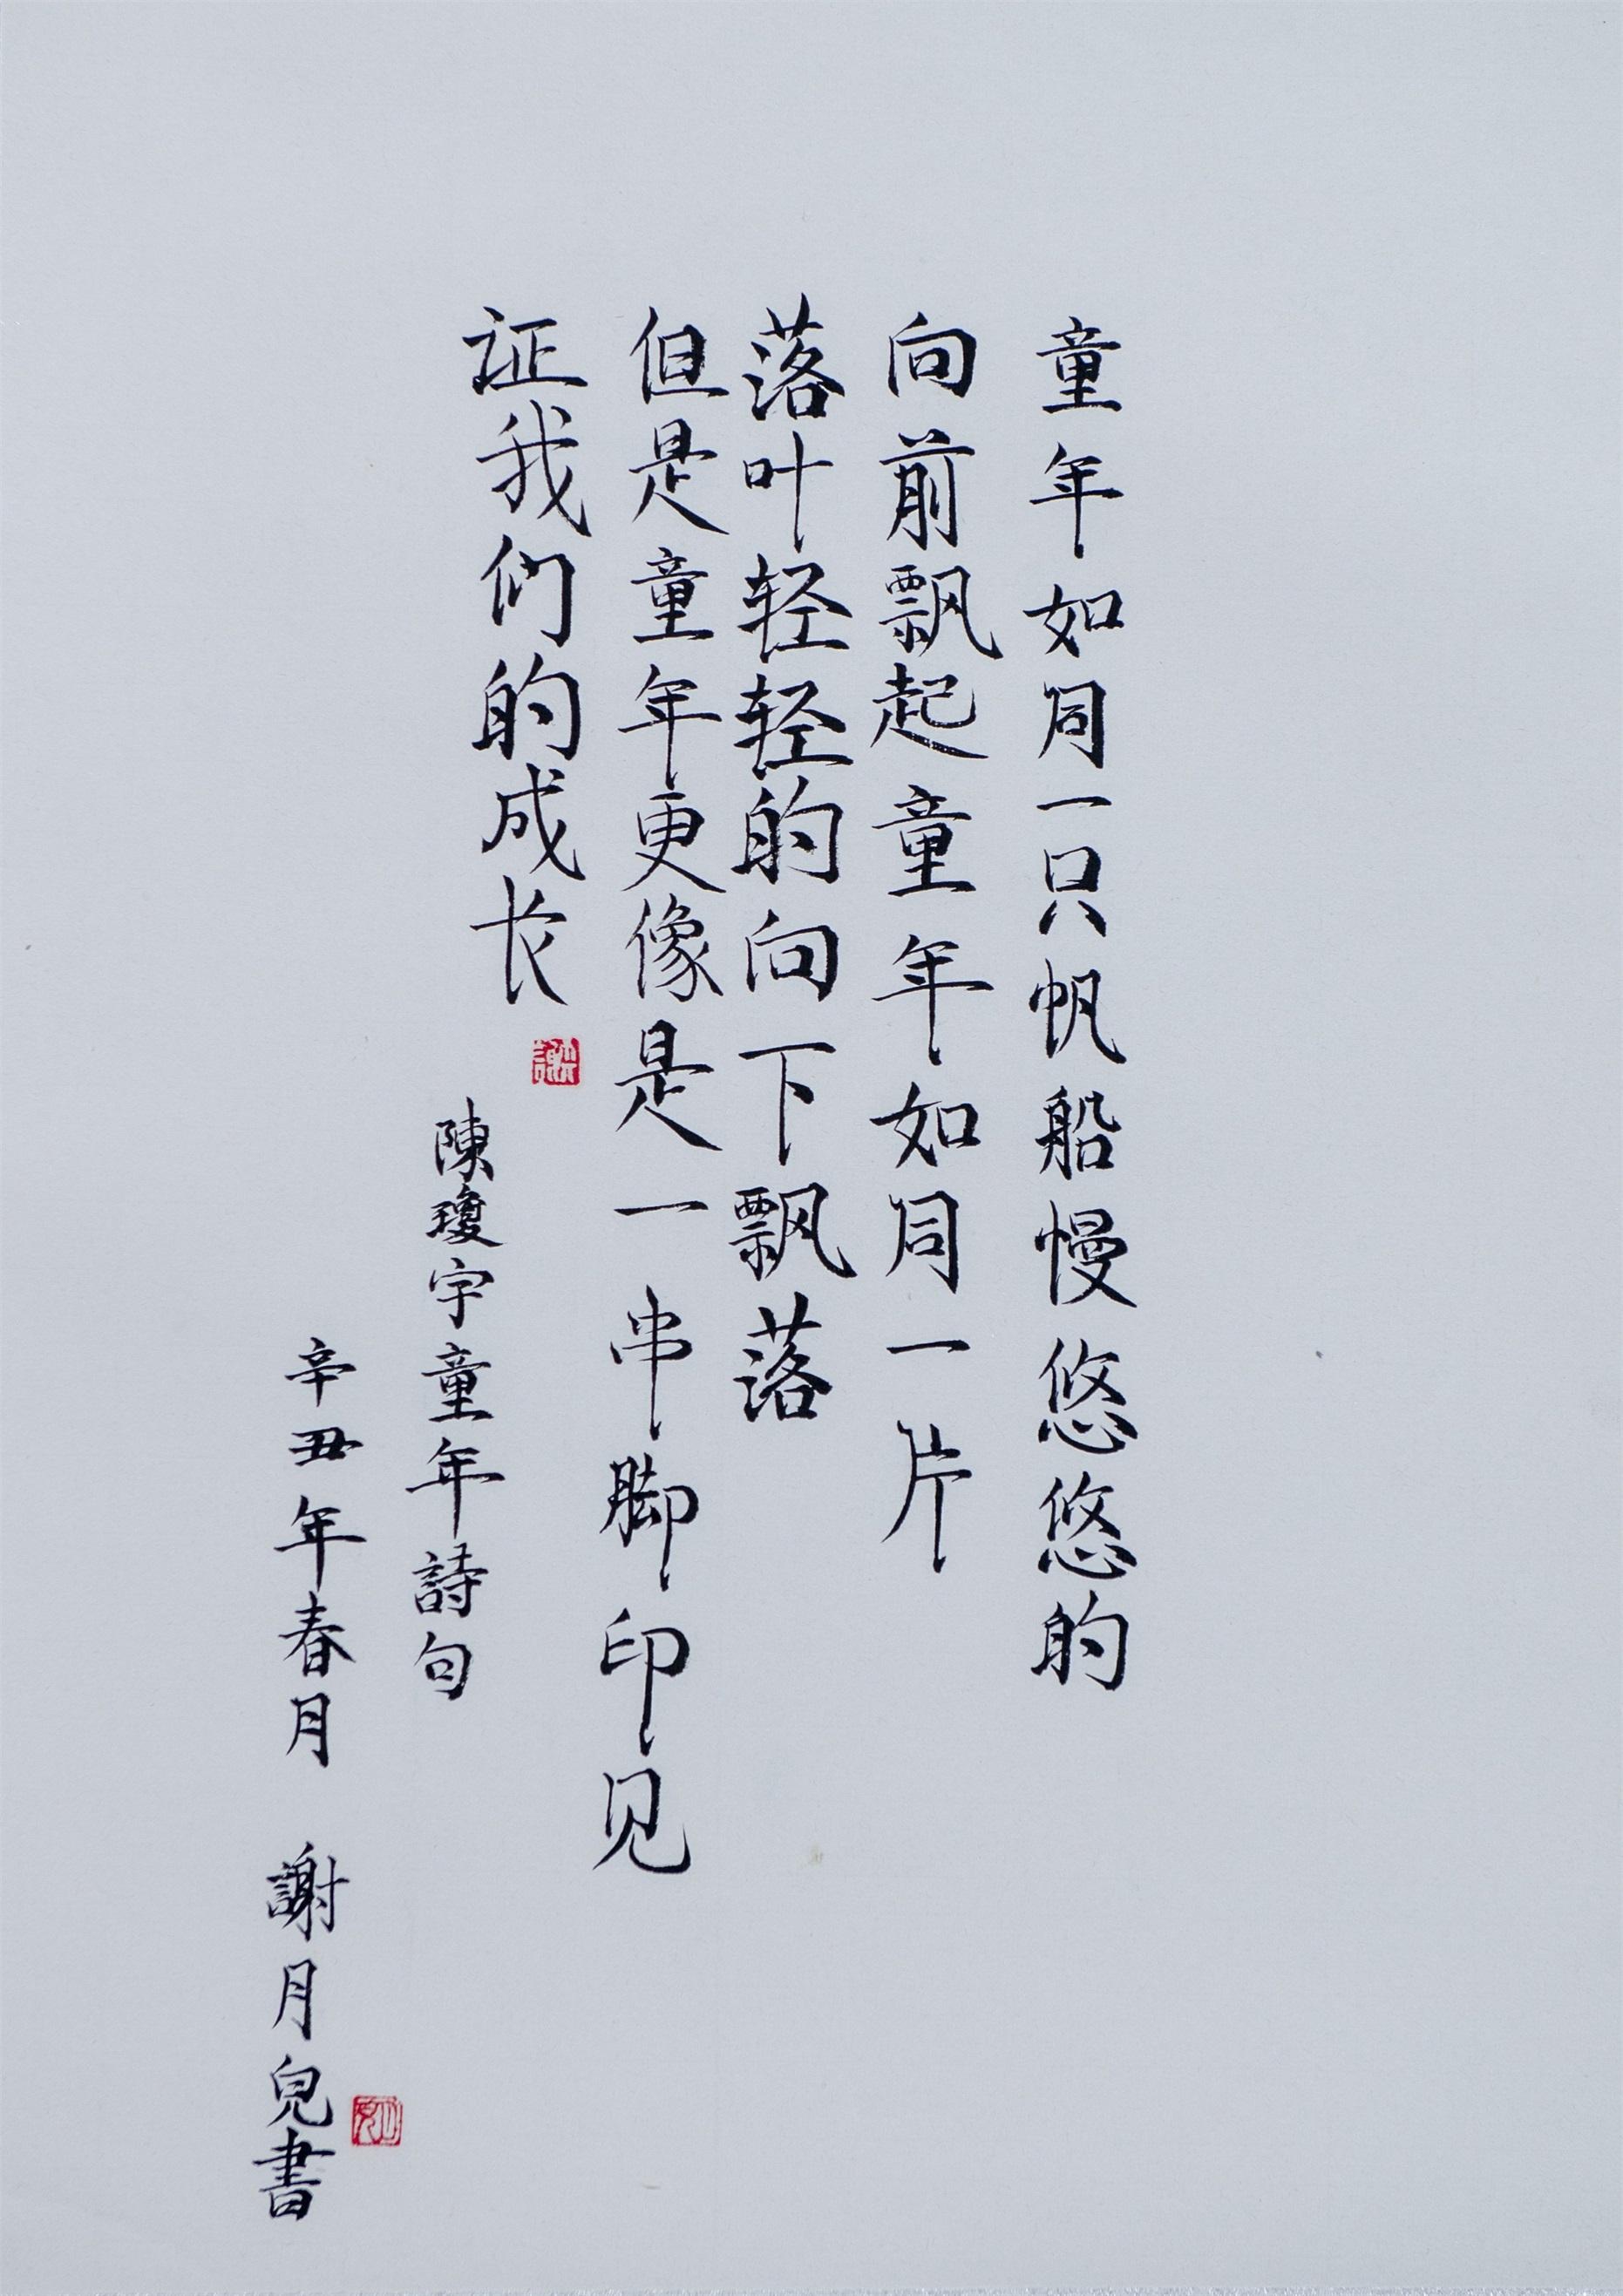 童年如同一只帆船慢悠悠的
向前飘起童年如同一片
落叶轻轻的向下飘落
但是童年更像是一串脚印见
证我们的成长
陳瓊宇童年詩句
辛丑年春月 謝月兒書